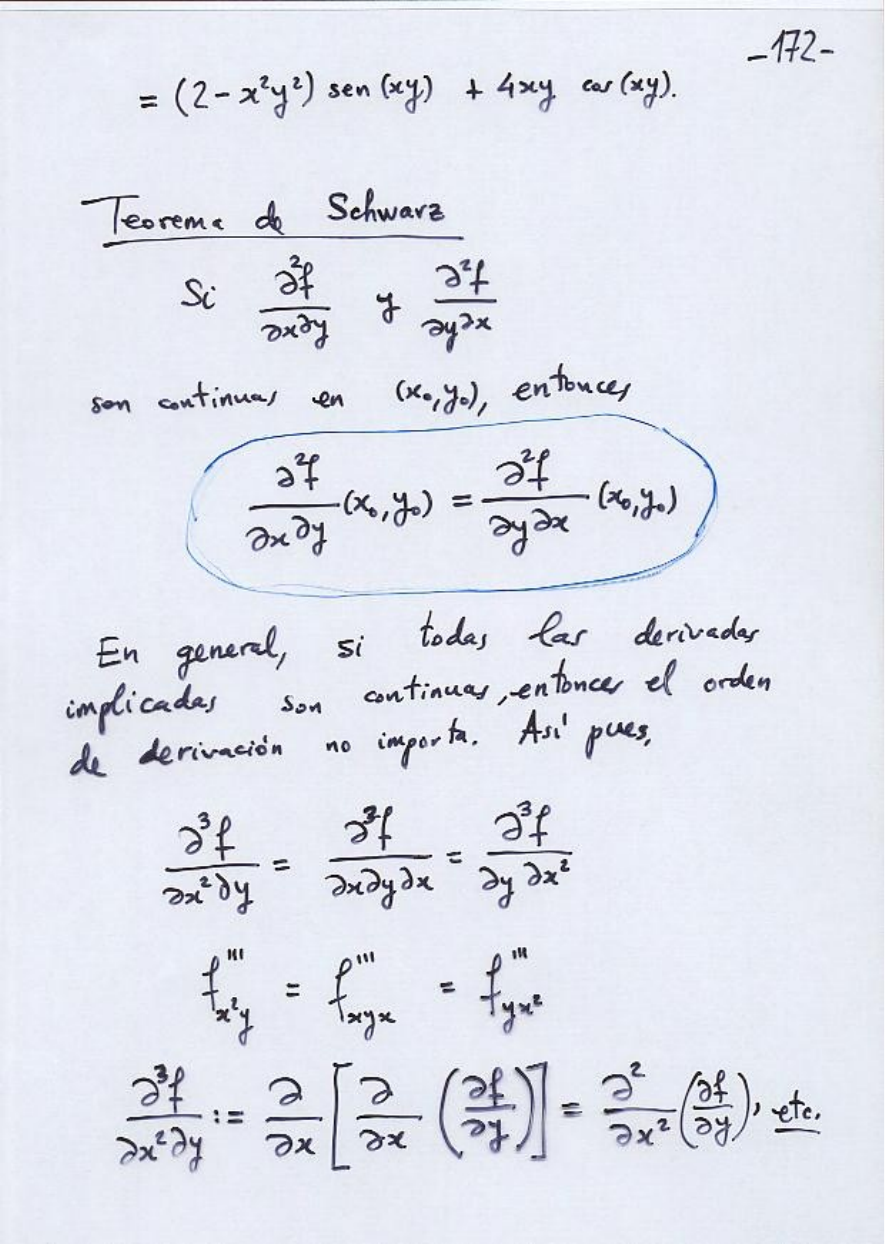 -172-
= (2 - x²y²) sen (xy) + 4xy cos (xy).
Teorema de Schwarz
Si ∂²f/∂x∂y y ∂²f/∂y∂x
son continuas en (x₀, y₀), entonces
∂²f/∂x∂y (x₀, y₀) = ∂²f/∂y∂x (x₀, y₀)
En general, si todas las derivadas
implicadas son continuas, entonces el orden
de derivación no importa. Así pues,
∂³f/∂x²∂y = ∂³f/∂x∂y∂x = ∂³f/∂y∂x²
f'''x²y = f'''xyx = f'''yx²
∂³f/∂x²∂y := ∂/∂x [∂/∂x (∂f/∂y)] = ∂²/∂x² (∂f/∂y), etc.